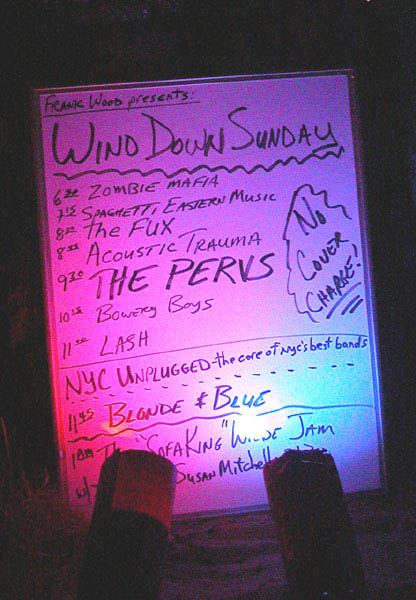 FRANK WOOD presents:
WIND DOWN SUNDAY
6 30 ZOMBIE MAFIA
7 15 SPAGHETTI EASTERN MUSIC
8 00 The FUX
ACOUSTIC TRAUMA
9 30 THE PERVS
10 15 BOWERY BOYS
11 00 LASH
NO
COVER
CHARGE!
NYC UNPLUGGED-the core of NYC's best bands
11 45 BLONDE & BLUE
"SOFAKING" WILDE JAM
w/ SUSAN Mitchell